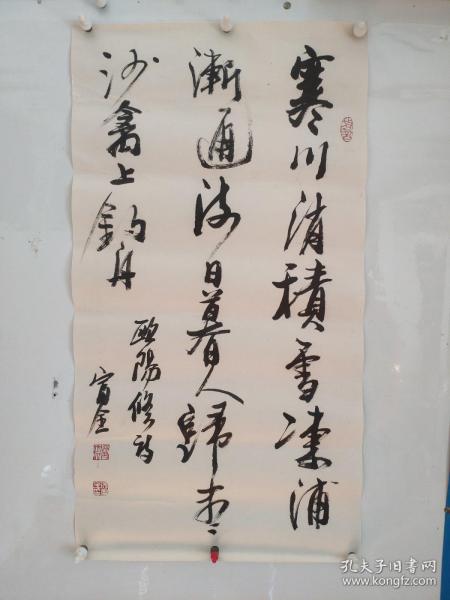 寒川消積雪凍浦
漸通流日暮人歸盡
沙禽上釣舟
歐陽修詩
孔夫子旧书网
www.kongfz.com